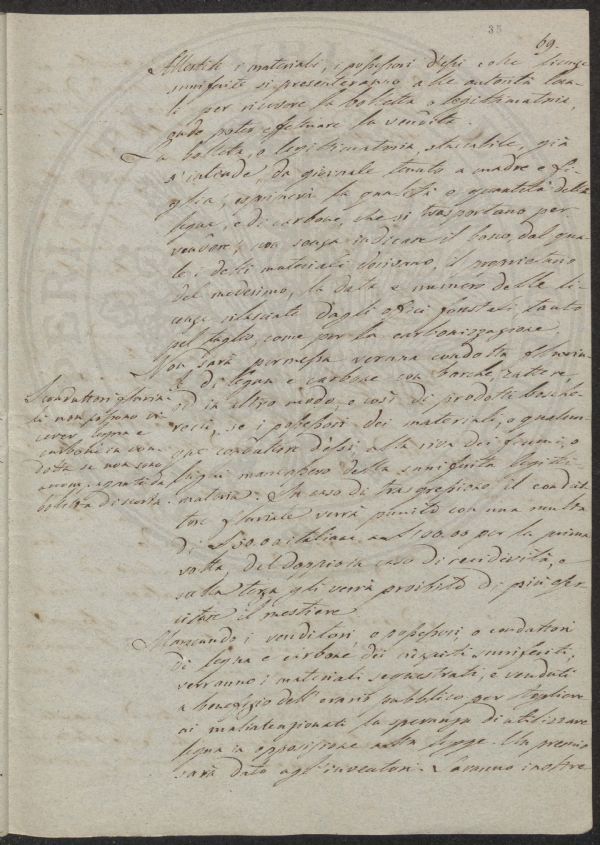 35
69.
Allestiti i materiali, i possessori d'essi colle licenze
surriferite si presenteranno alle autorità loca-
li per ricevere la bolletta o legittimatoria,
onde poter effettuare la vendita.
La bolletta, o legittimatoria, staccabile, già
s'intende, da giornale tenuto a madre e fi-
glia, esprimerà la qualità e quantità della
legna, e di carbone, che si trasportano per
vendere, con senza indicare il bosco, dal qua-
le i detti materiali derivano, il proprietario
del medesimo, la data e numero delle li-
cenze rilasciate dagli ofici forestali tanto
pel taglio, come per la carbonizzazione.
Non sarà permessa veruna condotta fluvia-
le di legna e carbone con barche, zattere,
od in altro modo, e così di prodotti bosche-
recci, se i possessori dei materiali, o qualun-
que conduttore d'essi alla riva dei fiumi, o
laghi mancassero della surriferita legitti-
matoria. In caso di trasgressione il condut-
tore fluviale verrà punito con una multa
di 50.00 italiane a 100.00 per la prima
volta, del doppio in caso di recidività, e
sulla terza gli verrà proibito di più eser-
citare il mestiere.
I conduttori fluvia-
li non possono ri-
cever legna e
carbone in con-
dotta se non sono
accompagnati da
bolletta di scorta.
Mancando i venditori, o possessori, o conduttori
di legna e carbone dei ricapiti surriferiti,
verranno i materiali sequestrati, e venduti
a benefizio dell'erario pubblico per togliere
ai malintenzionati la speranza di utilizzare
legna in opposizione alla legge. Un premio
sarà dato agl'inventori. Saranno inoltre